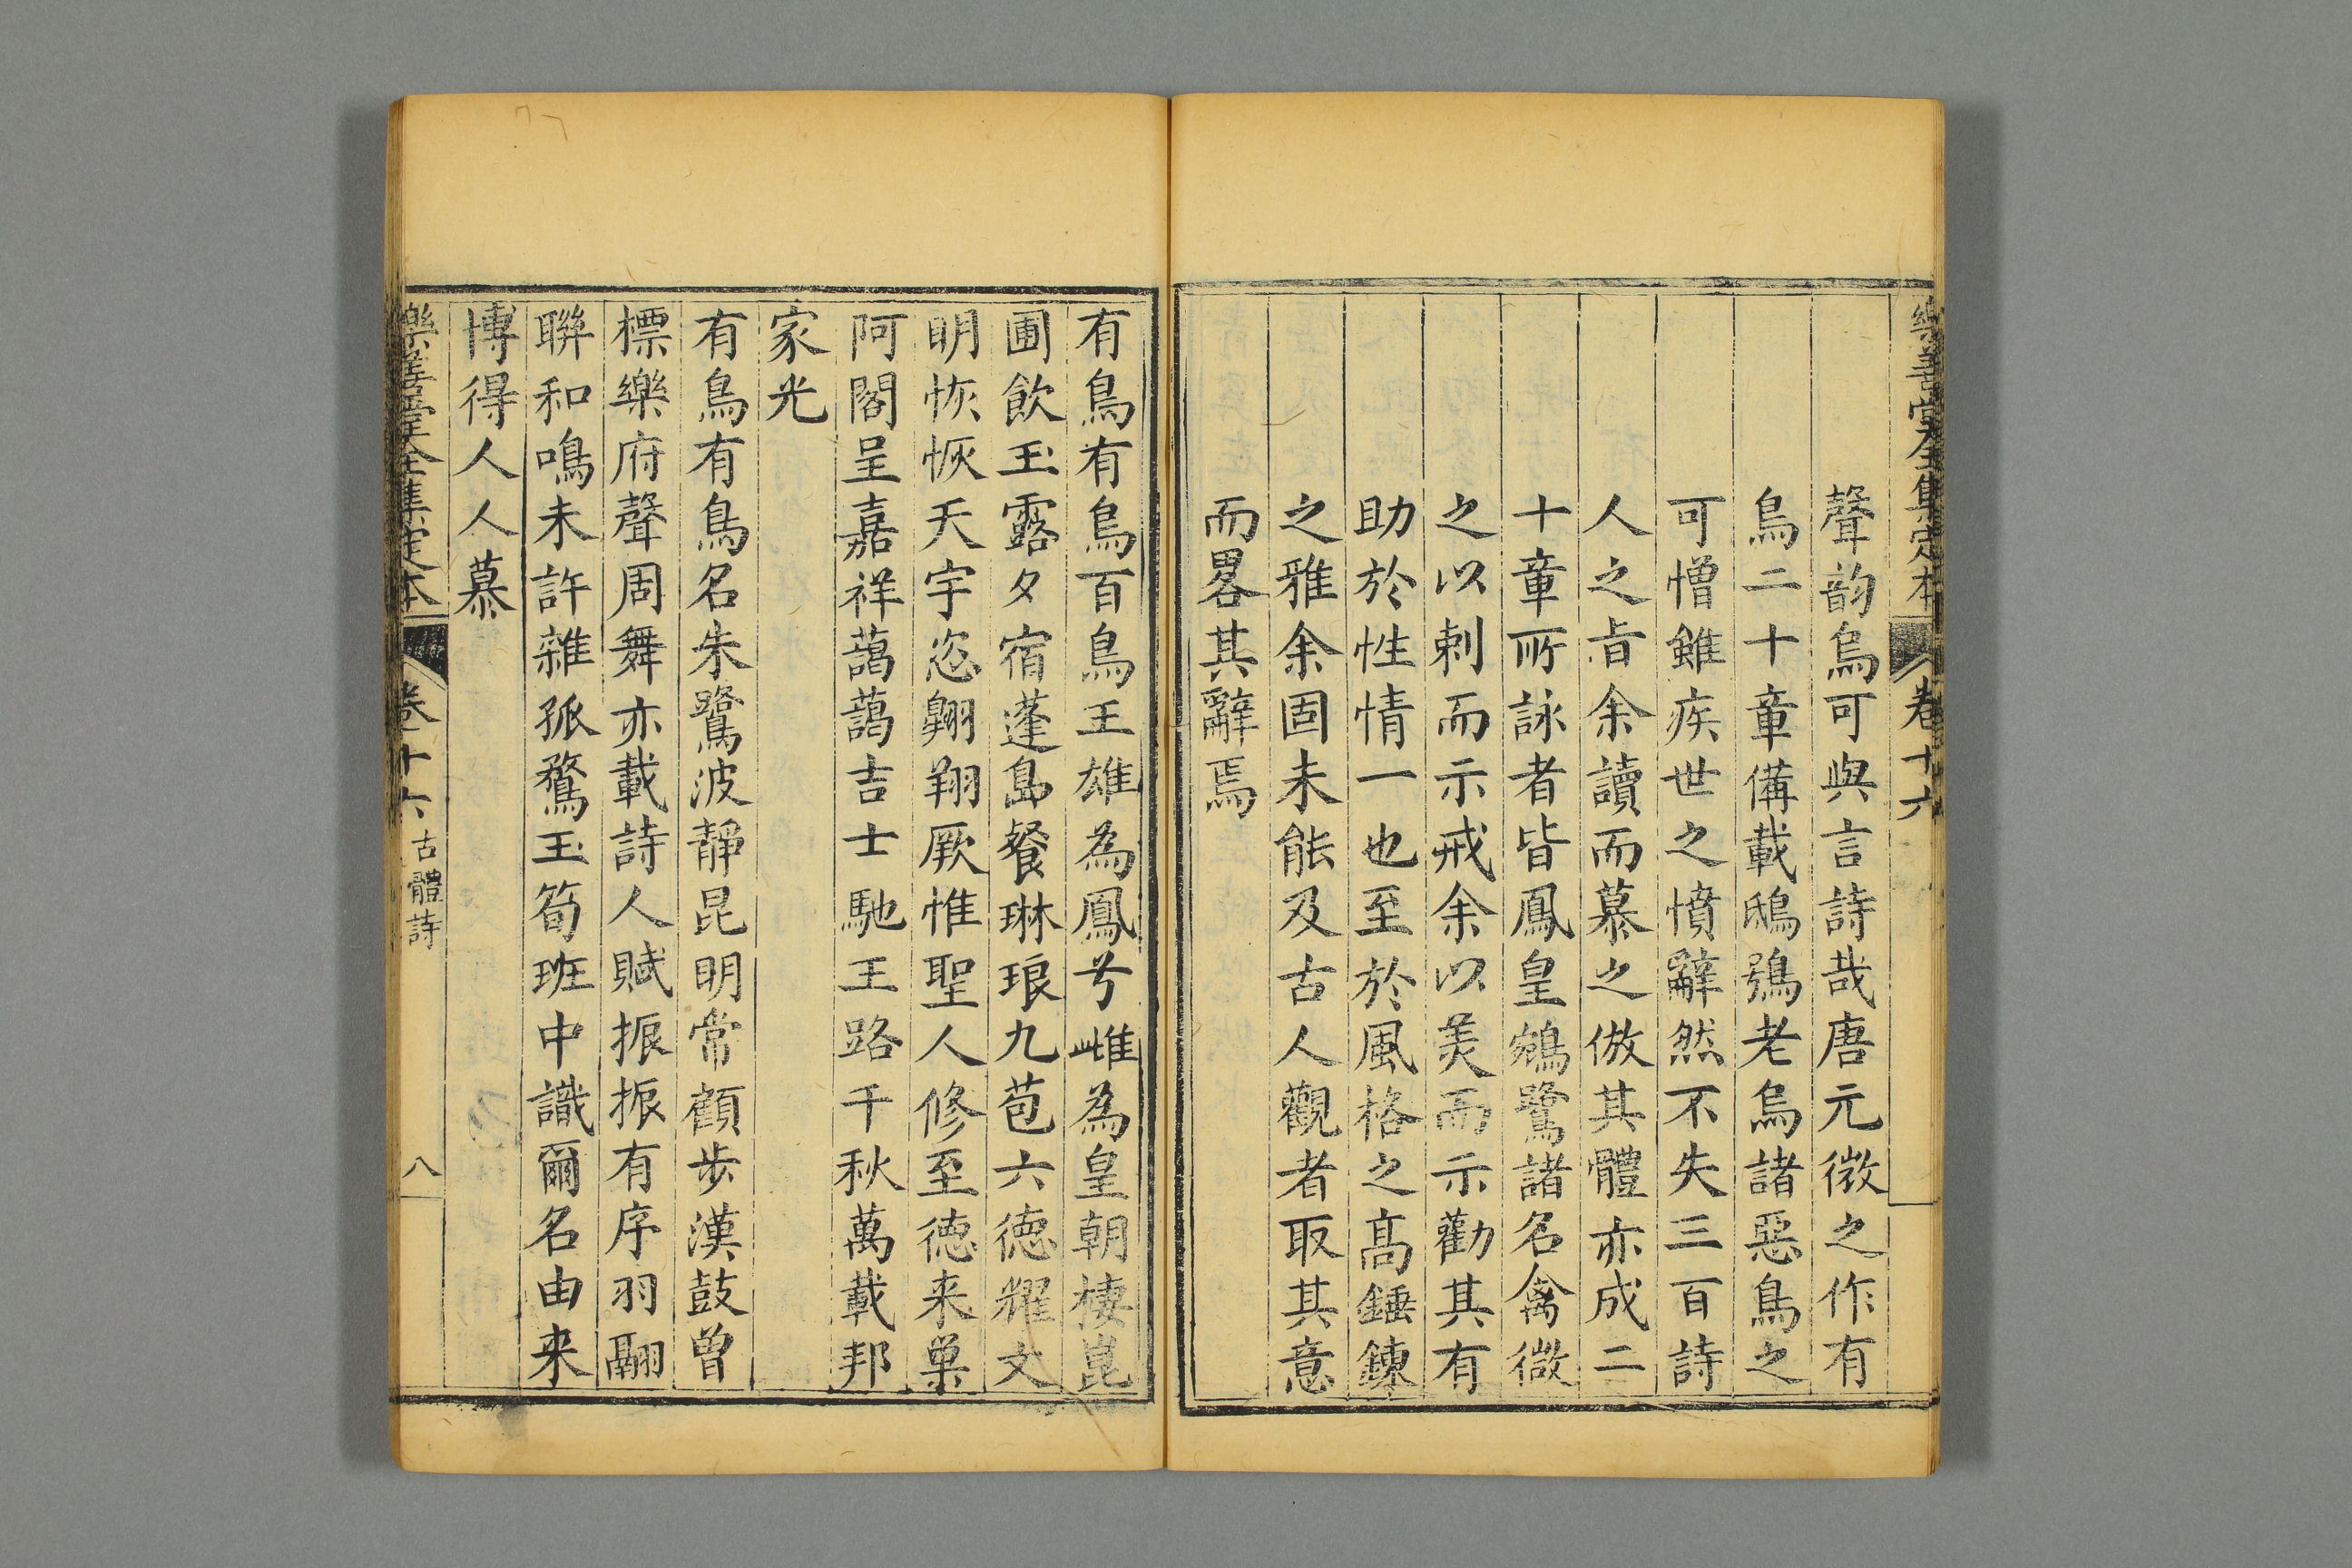 樂善堂全集定本 卷十六
聲韵烏可與言詩哉唐元微之作有
鳥二十章備載鴟鴞老烏諸惡鳥之
可憎雖疾世之憤辭然不失三百詩
人之旨余讀而慕之倣其體亦成二
十章所詠者皆鳳皇鵷鷺諸名禽微
之以刺而示戒余以美而示勸其有
助於性情一也至於風格之高錘鍊
之雅余固未能及古人觀者取其意
而畧其辭焉
有鳥有鳥百鳥王雄為鳳兮雌為皇朝棲崑
圃飲玉露夕宿蓬島餐琳琅九苞六徳耀文
明恢恢天宇恣翺翔厥惟聖人修至徳来巢
阿閣呈嘉祥藹藹吉士馳王路千秋萬載邦
家光
有鳥有鳥名朱鷺波靜昆明常顧步漢鼓曾
標樂府聲周舞亦載詩人賦振振有序羽翮
聨和鳴未許雜孤鶩玉筍班中識爾名由来
博得人人慕
樂善堂全集定本 卷十六 古體詩 八